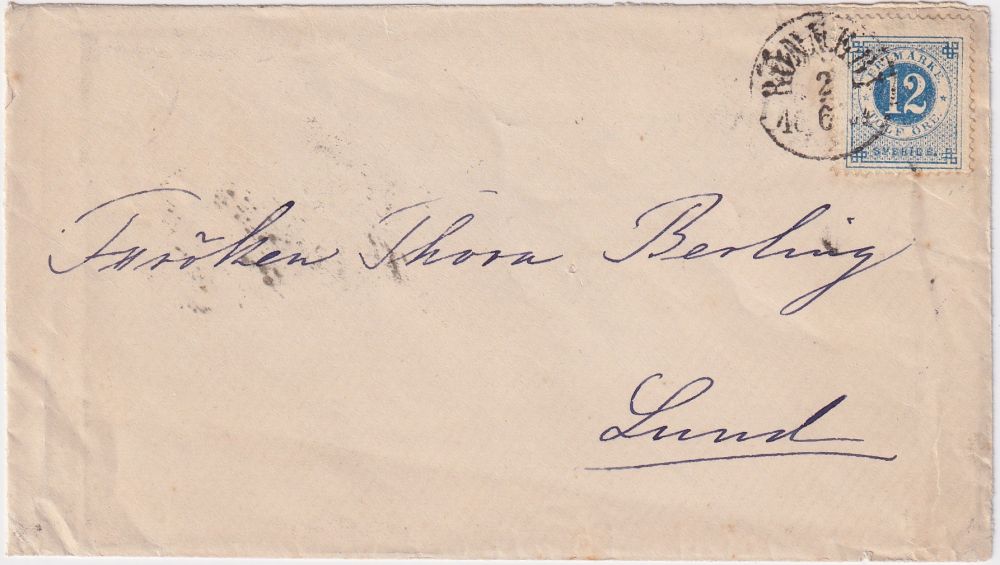 RONNEBY
2
6
FRIMÄRKE
12
TOLF ÖRE.
SVERIGE.
Fröken Thora Berling
Lund